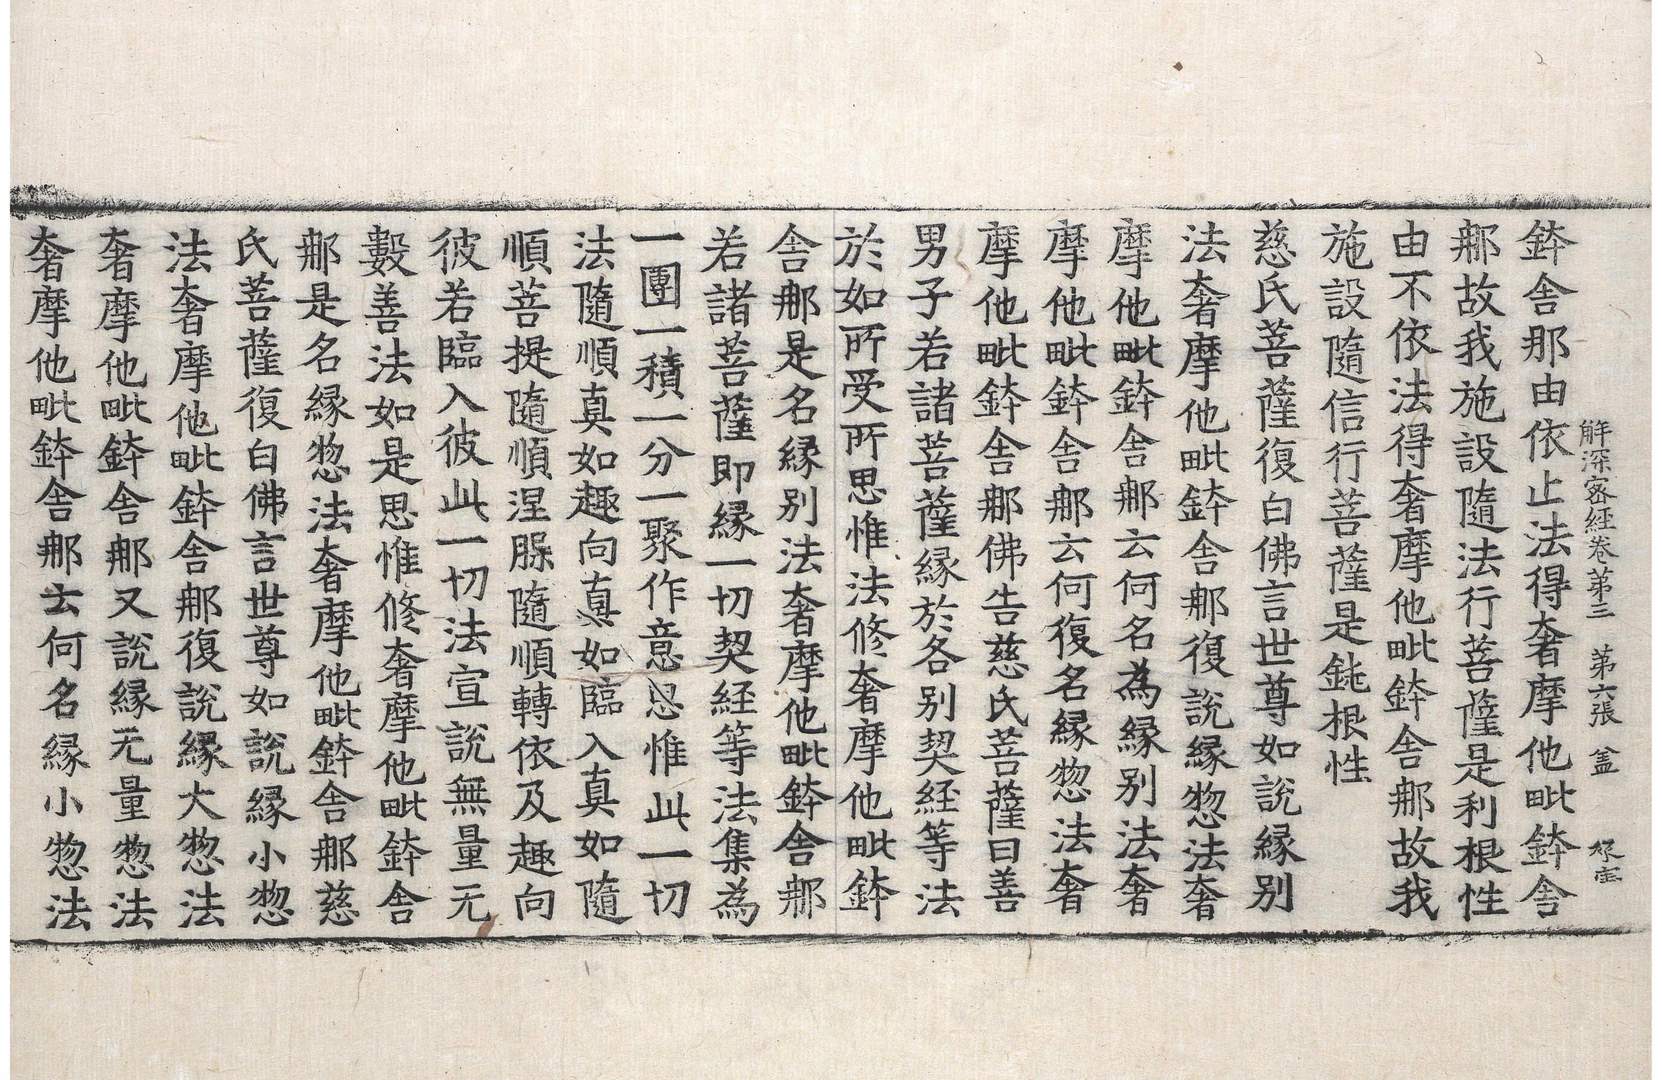 解深密經卷第三 第六張 盖
鉢舍那由依止法得奢摩他毗鉢舍
那故我施設隨法行菩薩是利根性
由不依法得奢摩他毗鉢舍那故我
施設隨信行菩薩是鈍根性
慈氏菩薩復白佛言世尊如說緣別
法奢摩他毗鉢舍那復說緣惣法奢
摩他毗鉢舍那云何名為緣別法奢
摩他毗鉢舍那云何復名緣惣法奢
摩他毗鉢舍那佛告慈氏菩薩曰善
男子若諸菩薩緣於各別契經等法
於如所受所思惟法修奢摩他毗鉢
舍那是名緣別法奢摩他毗鉢舍那
若諸菩薩即緣一切契經等法集為
一團一積一分一聚作意思惟此一切
法隨順真如趣向真如臨入真如隨
順菩提隨順涅脲隨順轉依及趣向
彼若臨入彼此一切法宣說無量无
數善法如是思惟修奢摩他毗鉢舍
那是名緣惣法奢摩他毗鉢舍那慈
氏菩薩復白佛言世尊如說緣小惣
法奢摩他毗鉢舍那復說緣大惣法
奢摩他毗鉢舍那又說緣无量惣法
奢摩他毗鉢舍那云何名緣小惣法